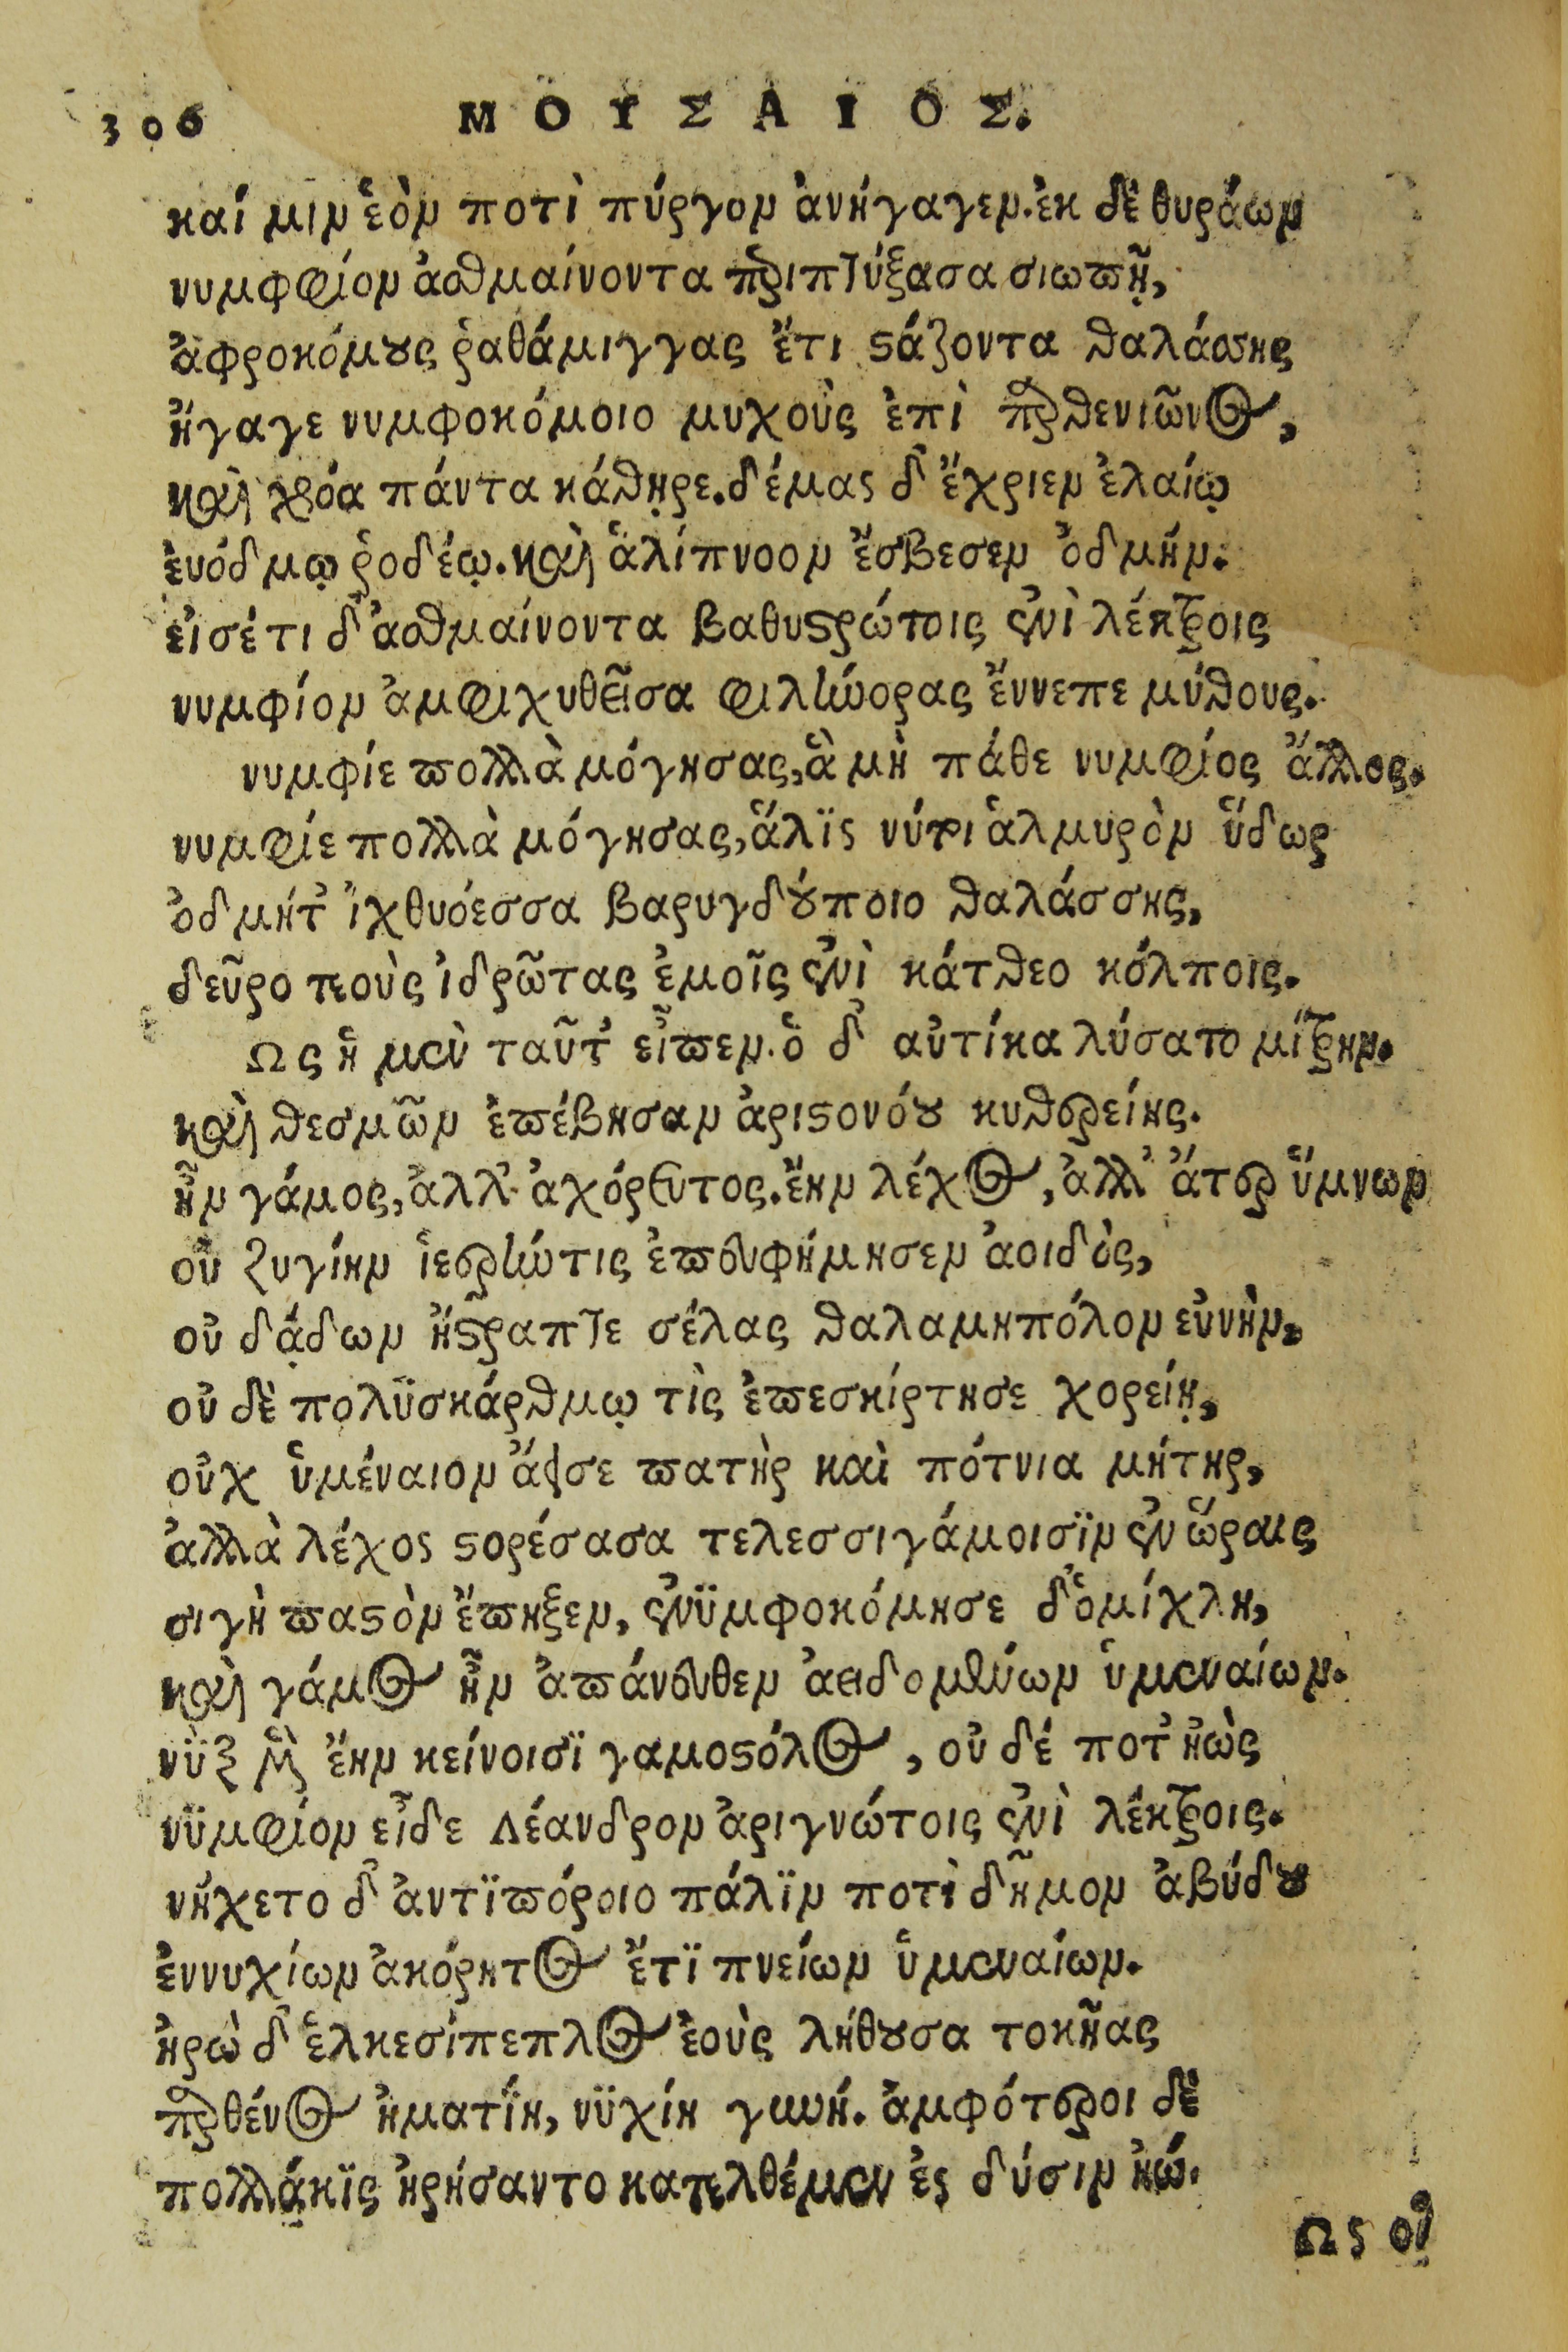 306 ΜΟΥΣΑΙΟΣ.
καί μιν ἑὸν ποτὶ πύργον ἀνήγαγεν. ἐκ δὲ θυράων
νυμφίον ἀσθμαίνοντα περιπτύξασα σιωπῇ,
ἀφροκόμους ῥαθάμιγγας ἔτι στάζοντα θαλάσσης
ἤγαγε νυμφοκόμοιο μυχοὺς ἐπὶ παρθενιῶνος,
καὶ χρόα πάντα κάθῃρε. δέμας δ' ἔχριεν ἐλαίῳ
ἐυόδμῳ ῥοδέῳ. καὶ ἁλίπνοον ἔσβεσεν ὀδμήν.
εἰσέτι δ' ἀσθμαίνοντα βαθυστρώτοις ἐνὶ λέκτροις
νυμφίον ἀμφιχυθεῖσα φιλήνορας ἔννεπε μύθους.
νυμφίε πολλὰ μόγησας, ἃ μὴ πάθε νυμφίος ἄλλος.
νυμφίε πολλὰ μόγησας, ἅλϊς νύ τοι ἁλμυρὸν ὕδωρ
ὀδμήτ' ἰχθυόεσσα βαρυγδούποιο θαλάσσης,
δεῦρο τεοὺς ἱδρῶτας ἐμοῖς ἐνὶ κάτθεο κόλποις.
Ως ἣ μὲν ταῦτ' εἶπεν. ὃ δ' αὐτίκα λύσατο μίτρην.
καὶ θεσμῶν ἐπέβησαν ἀριστονόου κυθερείης.
ἦν γάμος, ἀλλ' ἀχόρευτος. ἔην λέχος, ἀλλ' ἄτερ ὕμνων
οὐ ζυγίην ἱερήν τις ἐπευφήμησεν ἀοιδὸς,
οὐ δᾴδων ἤστραπτε σέλας θαλαμηπόλον εὐνὴν,
οὐ δὲ πολϋσκάρθμῳ τὶς ἐπεσκίρτησε χορείῃ,
οὐχ ὑμέναιον ἄεισε πατὴρ καὶ πότνια μήτηρ,
ἀλλὰ λέχος στορέσασα τελεσσιγάμοισϊν ἐν ὥραις
σιγὴ παστὸν ἔπηξεν, ἐνϋμφοκόμησε δ' ὁμίχλη,
καὶ γάμος ἦν ἀπάνευθεν ἀειδομένων ὑμεναίων.
νὺξ μὲν ἔην κείνοισϊ γαμοστόλος, οὐ δέ ποτ' ἠὼς
νϋμφίον εἶδε Λέανδρον ἀριγνώτοις ἐνὶ λέκτροις.
νήχετο δ' ἀντϊπόροιο πάλϊν ποτὶ δῆμον ἀβύδου
ἐννυχίων ἀκόρητος ἔτϊ πνείων ὑμεναίων.
ἡρὼ δ' ἑλκεσίπεπλος ἑοὺς λήθουσα τοκῆας
παρθένος ἠματΐη, νϋχίη γυνή. ἀμφότεροι δὲ
πολλάκϊς ἠρήσαντο κατελθέμεν ἐς δύσιν ἠώ.
Ως οἱ